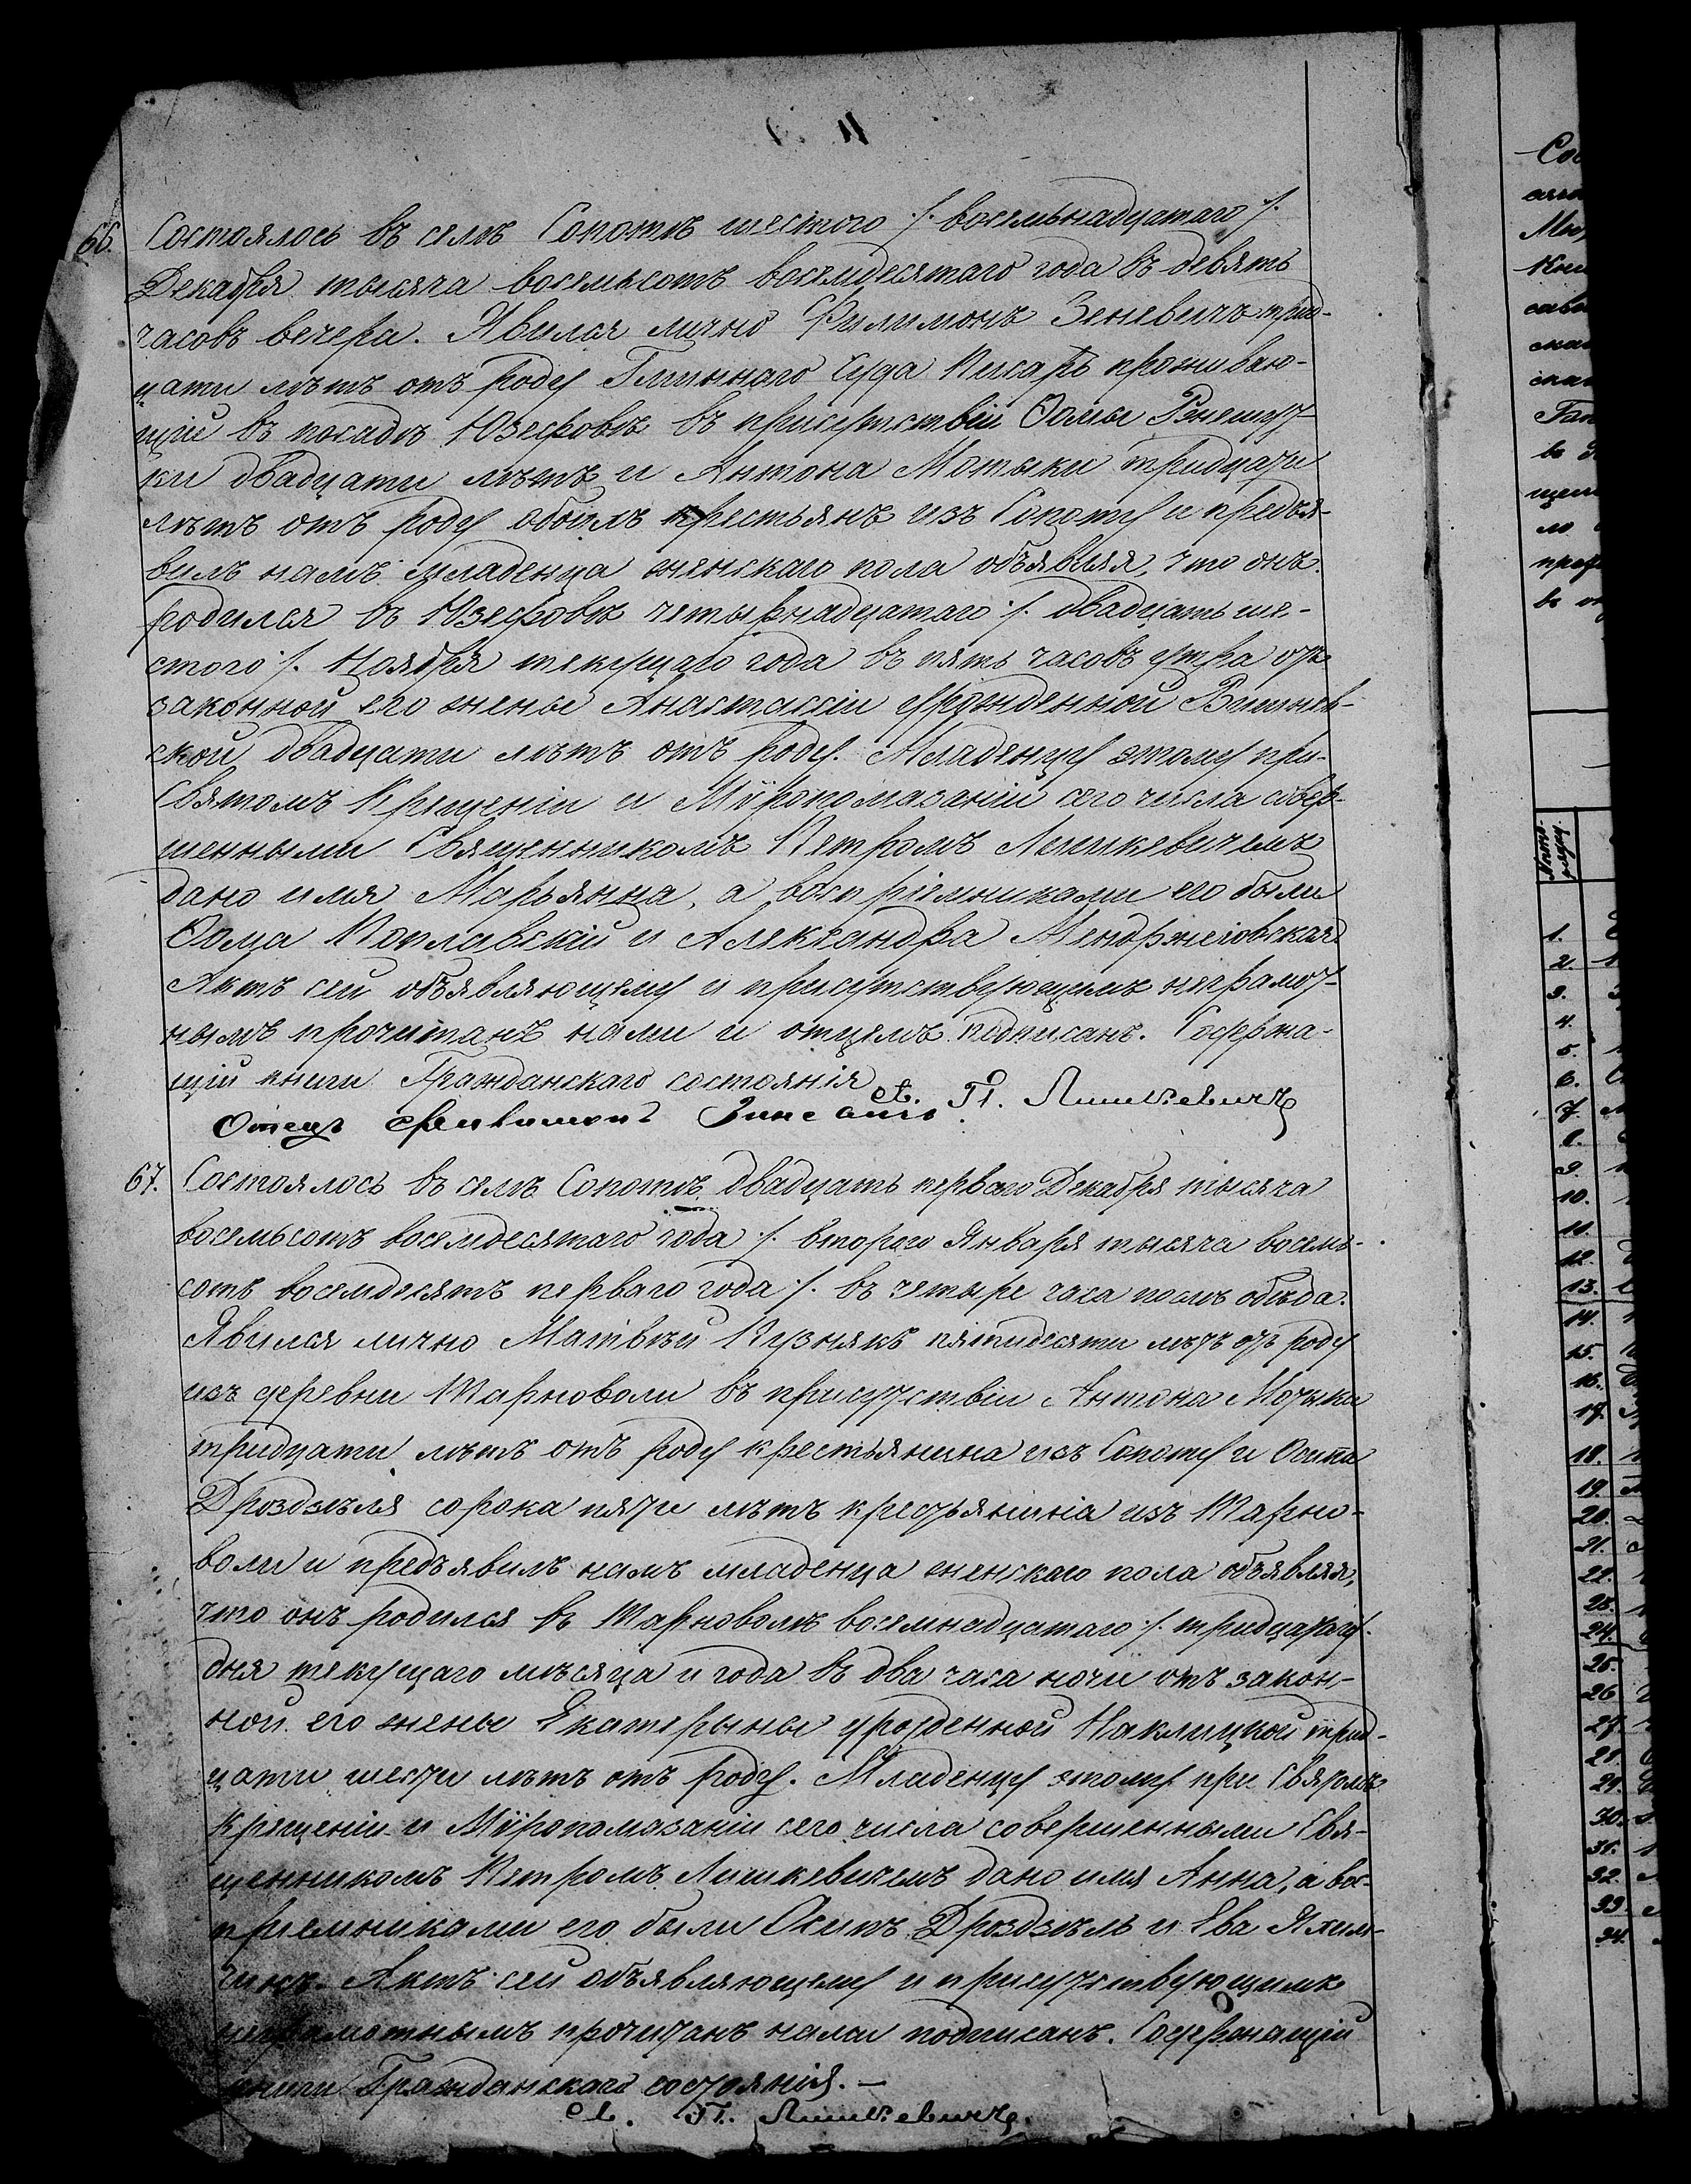 66. Состоялось въ селѣ Сопотѣ шестого /. восемьнадцатаго /.
Декабря тысяча восемьсотъ восемдесятаго года въ девять
часовъ вечера. Явился лично Филимонъ Зеневичъ трид-
цати лѣтъ отъ роду Гминнаго Суда Писарь проживаю-
щій въ посадѣ Юзефовѣ въ присутствіи Ѳомы
ки двадцати лѣтъ и Антона Мотыки тридцати
лѣтъ отъ роду обоихъ крестьянъ изъ Сопоту и предъя-
вилъ намъ младенца женскаго пола объявляя, что онъ
родился въ Юзефовѣ четырнадцатаго /. двадцать ше-
стого /. Ноября текущаго года въ пять часовъ утра отъ
законной его жены Анастасіи урожденной Вишнев-
ской двадцати лѣтъ отъ роду. Младенцу этому при
Святомъ Крещеніи и Мѵропомазаніи сего числа совер-
шенными Священникомъ Петромъ Лишкевичемъ
дано имя Марьянна, а воспріемниками его были
Ѳома и Александра
Актъ сей объявляющему и присутствующимъ неграмот-
нымъ прочитанъ нами и отцемъ подписанъ. Содержа-
щій книги Гражданскаго состоянія
Св. П. Лишкевичъ
Отецъ Филимонъ
67. Состоялось въ селѣ Сопотѣ двадцать перваго Декабря тысяча
восемьсотъ восемдесятаго года /. второго Января тысяча восемь-
сотъ восемдесятъ перваго года /. въ четыре часа послѣ обѣда.
Явился лично Матвѣй Кузнякъ пятидесяти лѣтъ отъ роду
изъ деревни Тарноволи въ присутствіи Антона Мотыка
тридцати лѣтъ отъ роду крестьянина изъ Сопоту и Осипа
Дроздзѣля сорока пяти лѣтъ крестьянина изъ Тарно-
воли и предъявилъ намъ младенца женскаго пола объявляя,
что онъ родился въ Тарноволѣ восемнадцатаго /. тридцатаго /.
дня текущаго мѣсяца и года въ два часа ночи отъ закон-
ной его жены Екатерыны урожденной Наклицкой трид-
цати шести лѣтъ отъ роду. Младенцу этому при Святомъ
Крещеніи и Мѵропомазаніи сего числа совершенными Свя-
щенникомъ Петромъ Лишкевичемъ дано имя Анна, а вос-
пріемниками его были Осипъ Дроздзѣль и Ева
Актъ сей объявляющему и присутствующимъ
неграмотнымъ прочитанъ нами подписанъ. Содержащій
книги Гражданскаго состоянія. —
Св. П. Лишкевичъ.
1.
2.
3.
4.
5.
6.
7.
8.
9.
10.
11.
12.
13.
14.
15.
16.
17.
18.
19.
20.
21.
22.
23.
24.
25.
26
27.
28.
29.
30.
31.
32.
33.
34.